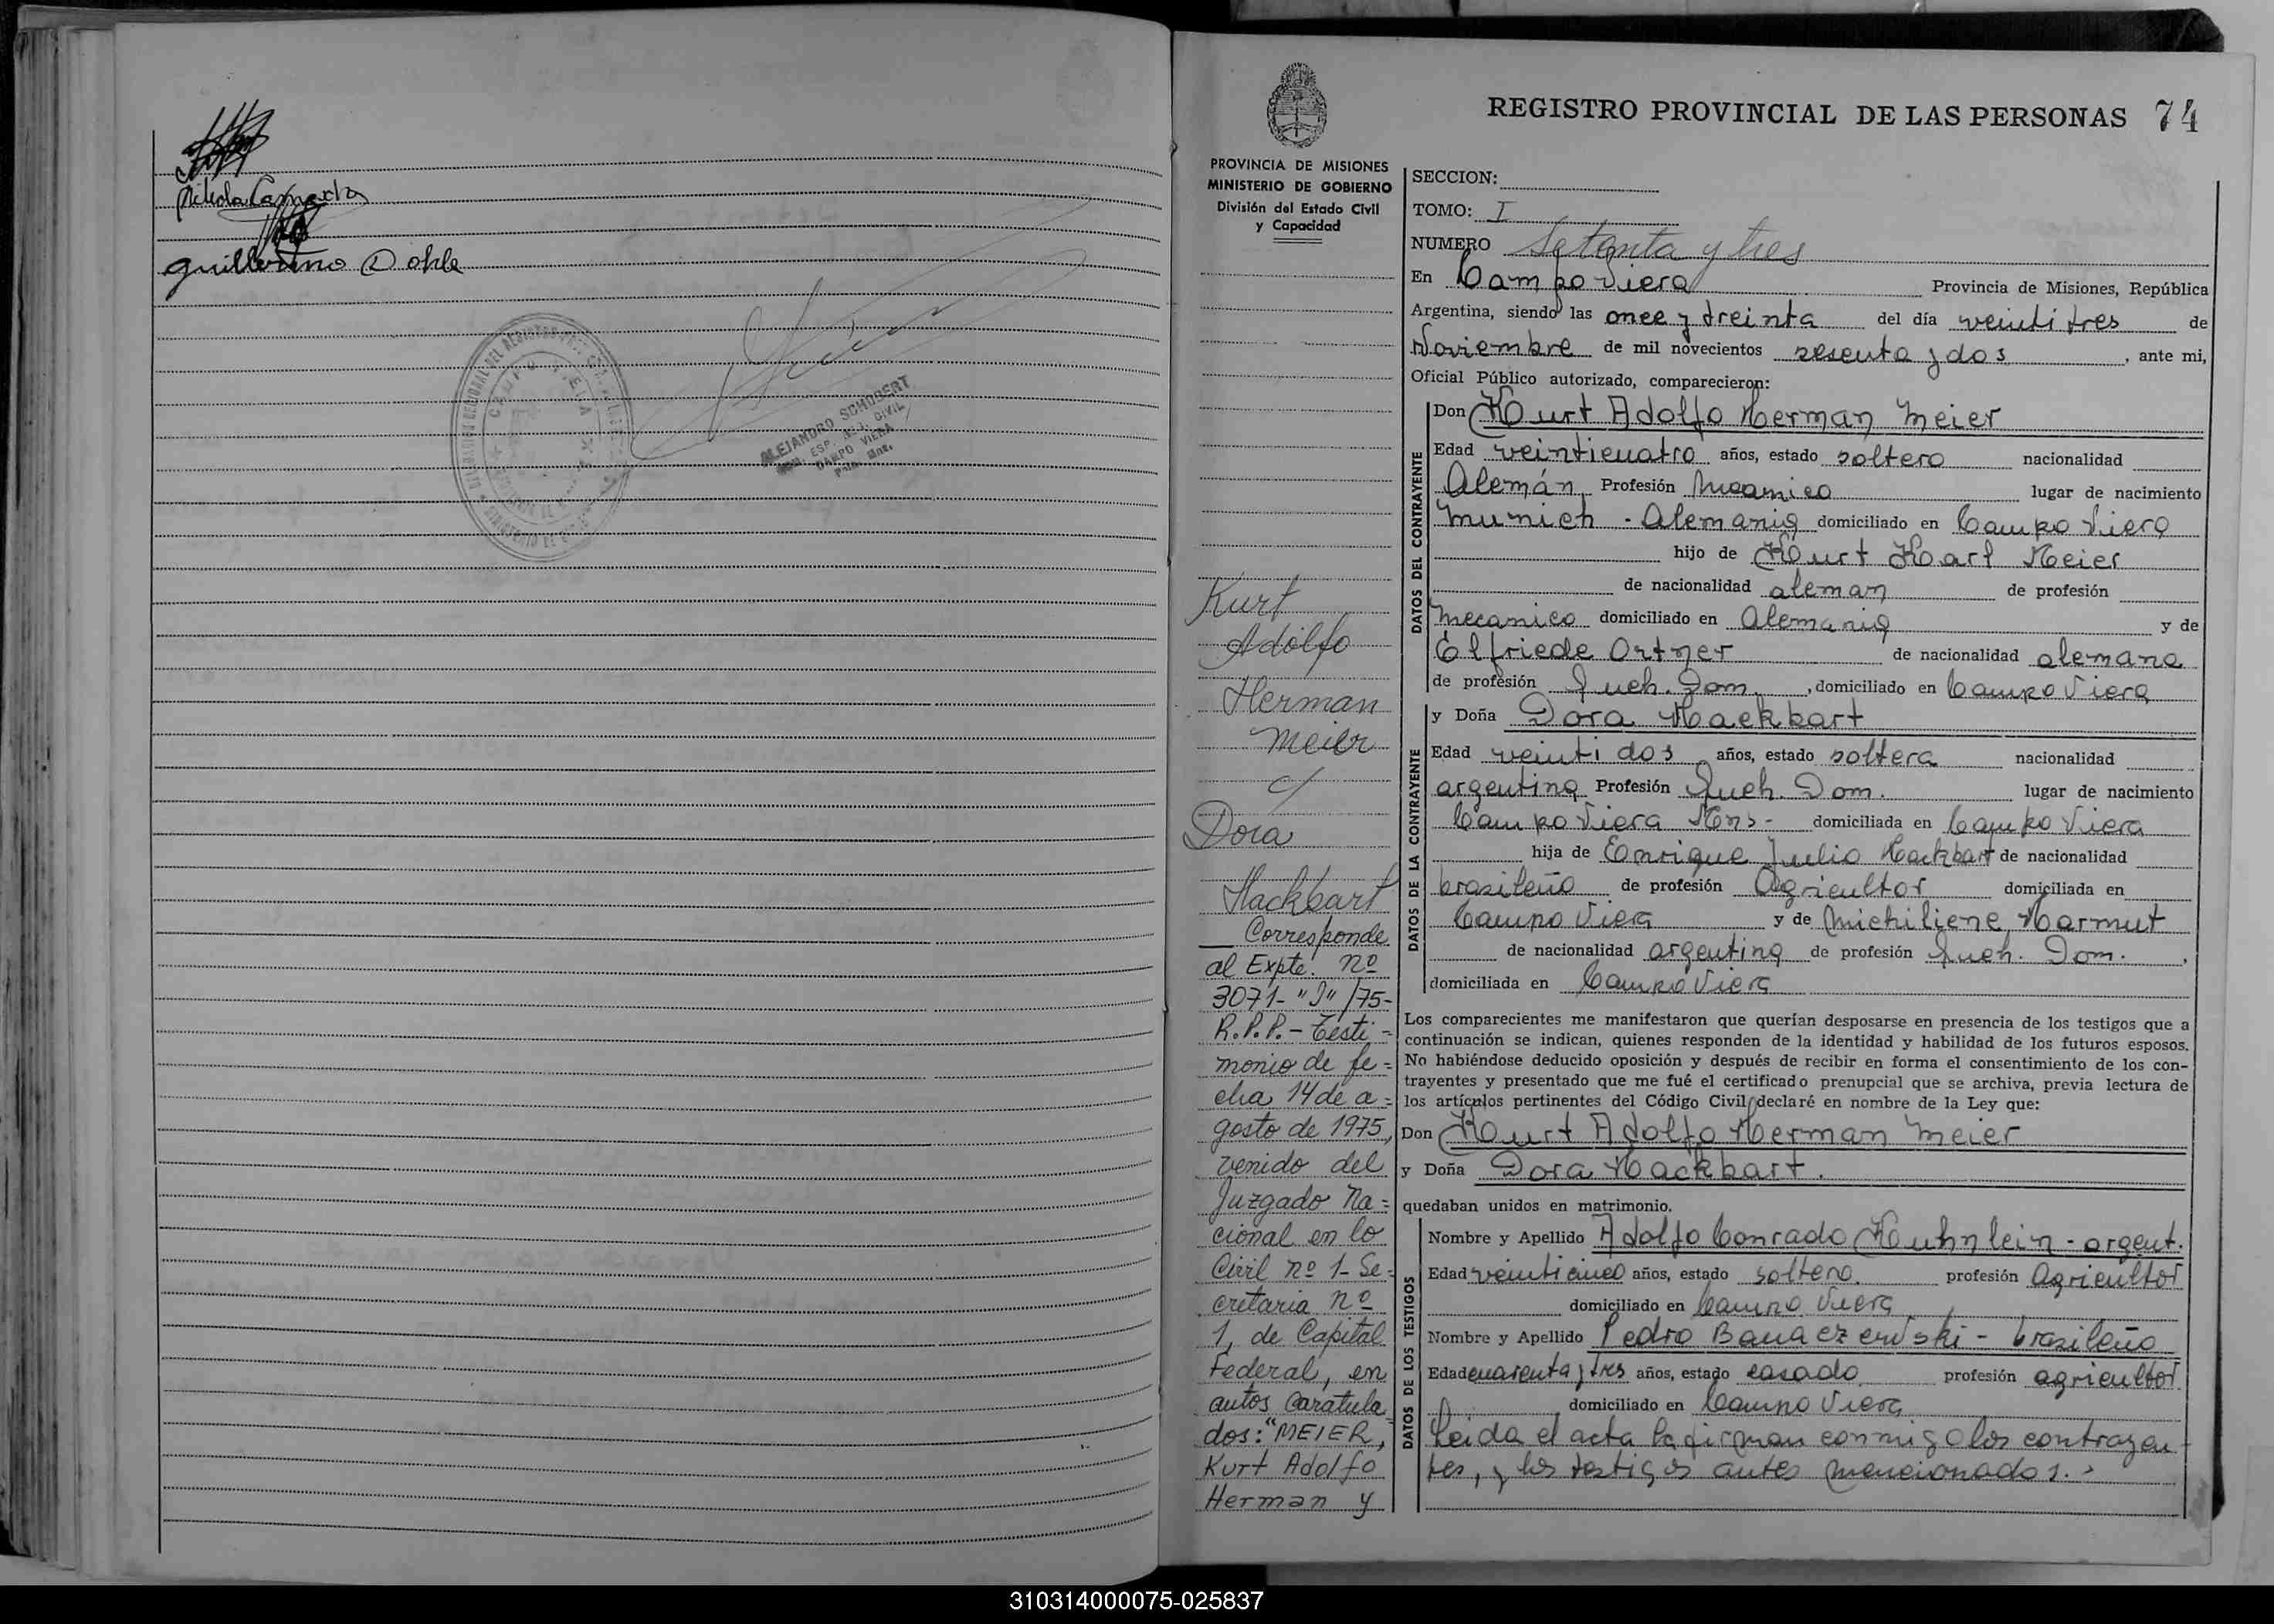 Guillermo Dohle
ALEJANDRO SCHUBERT
CAMPO VIERA
REGISTRO PROVINCIAL DE LAS PERSONAS 74
PROVINCIA DE MISIONES
MINISTERIO DE GOBIERNO
División del Estado Civil
y Capacidad
Kurt
Adolfo
Herman
Meier
c/
Dora
Hackbart
Corresponde
al Expte. nº
3071-"J"/75-
R.P.P.- Testi=
monio de fe=
cha 14 de a=
gosto de 1975,
venido del
Juzgado Na=
cional en lo
Civil nº 1- Se=
cretaria nº
1, de Capital
Federal, en
autos caratula
dos: "MEIER,
Kurt Adolfo
Herman y
SECCION:
TOMO: I
NUMERO Setenta y tres
En Campo Viera Provincia de Misiones, República
Argentina, siendo las once y treinta del día veintitres de
Noviembre de mil novecientos sesenta y dos, ante mi,
Oficial Público autorizado, comparecieron:
DATOS DEL CONTRAYENTE
Don Kurt Adolfo Herman Meier
Edad veinticuatro años, estado soltero nacionalidad
Alemán Profesión Mecanico lugar de nacimiento
Munich - Alemania domiciliado en Campo Viera
hijo de Kurt Karl Meier
de nacionalidad aleman de profesión
mecanico domiciliado en Alemania y de
Elfriede Ortner de nacionalidad alemana
de profesión Queh. Dom., domiciliado en Campo Viera
DATOS DE LA CONTRAYENTE
y Doña Dora Hackbart
Edad veintidos años, estado soltera nacionalidad
argentina Profesión Queh. Dom. lugar de nacimiento
Campo Viera Mns- domiciliada en Campo Viera
hija de Enrique Julio Hackbart de nacionalidad
brasileño de profesión Agricultor domiciliada en
Campo Viera y de Michiliene Harmut
de nacionalidad argentina de profesión Queh. Dom.,
domiciliada en Campo Viera
Los comparecientes me manifestaron que querían desposarse en presencia de los testigos que a
continuación se indican, quienes responden de la identidad y habilidad de los futuros esposos.
No habiéndose deducido oposición y después de recibir en forma el consentimiento de los con-
trayentes y presentado que me fué el certificado prenupcial que se archiva, previa lectura de
los artículos pertinentes del Código Civil declaré en nombre de la Ley que:
Don Kurt Adolfo Herman Meier
y Doña Dora Hackbart.
quedaban unidos en matrimonio.
DATOS DE LOS TESTIGOS
Nombre y Apellido Adolfo Conrado Kuhnlein - argent.
Edad veinticinco años, estado soltero. profesión Agricultor
domiciliado en Campo Viera
Nombre y Apellido Pedro Banaczewski - brasileño
Edad cuarenta y tres años, estado casado profesión agricultor
domiciliado en Campo Viera
Leida el acta la firman conmigo los contrayen-
tes, y los testigos antes mencionados.-
310314000075-025837